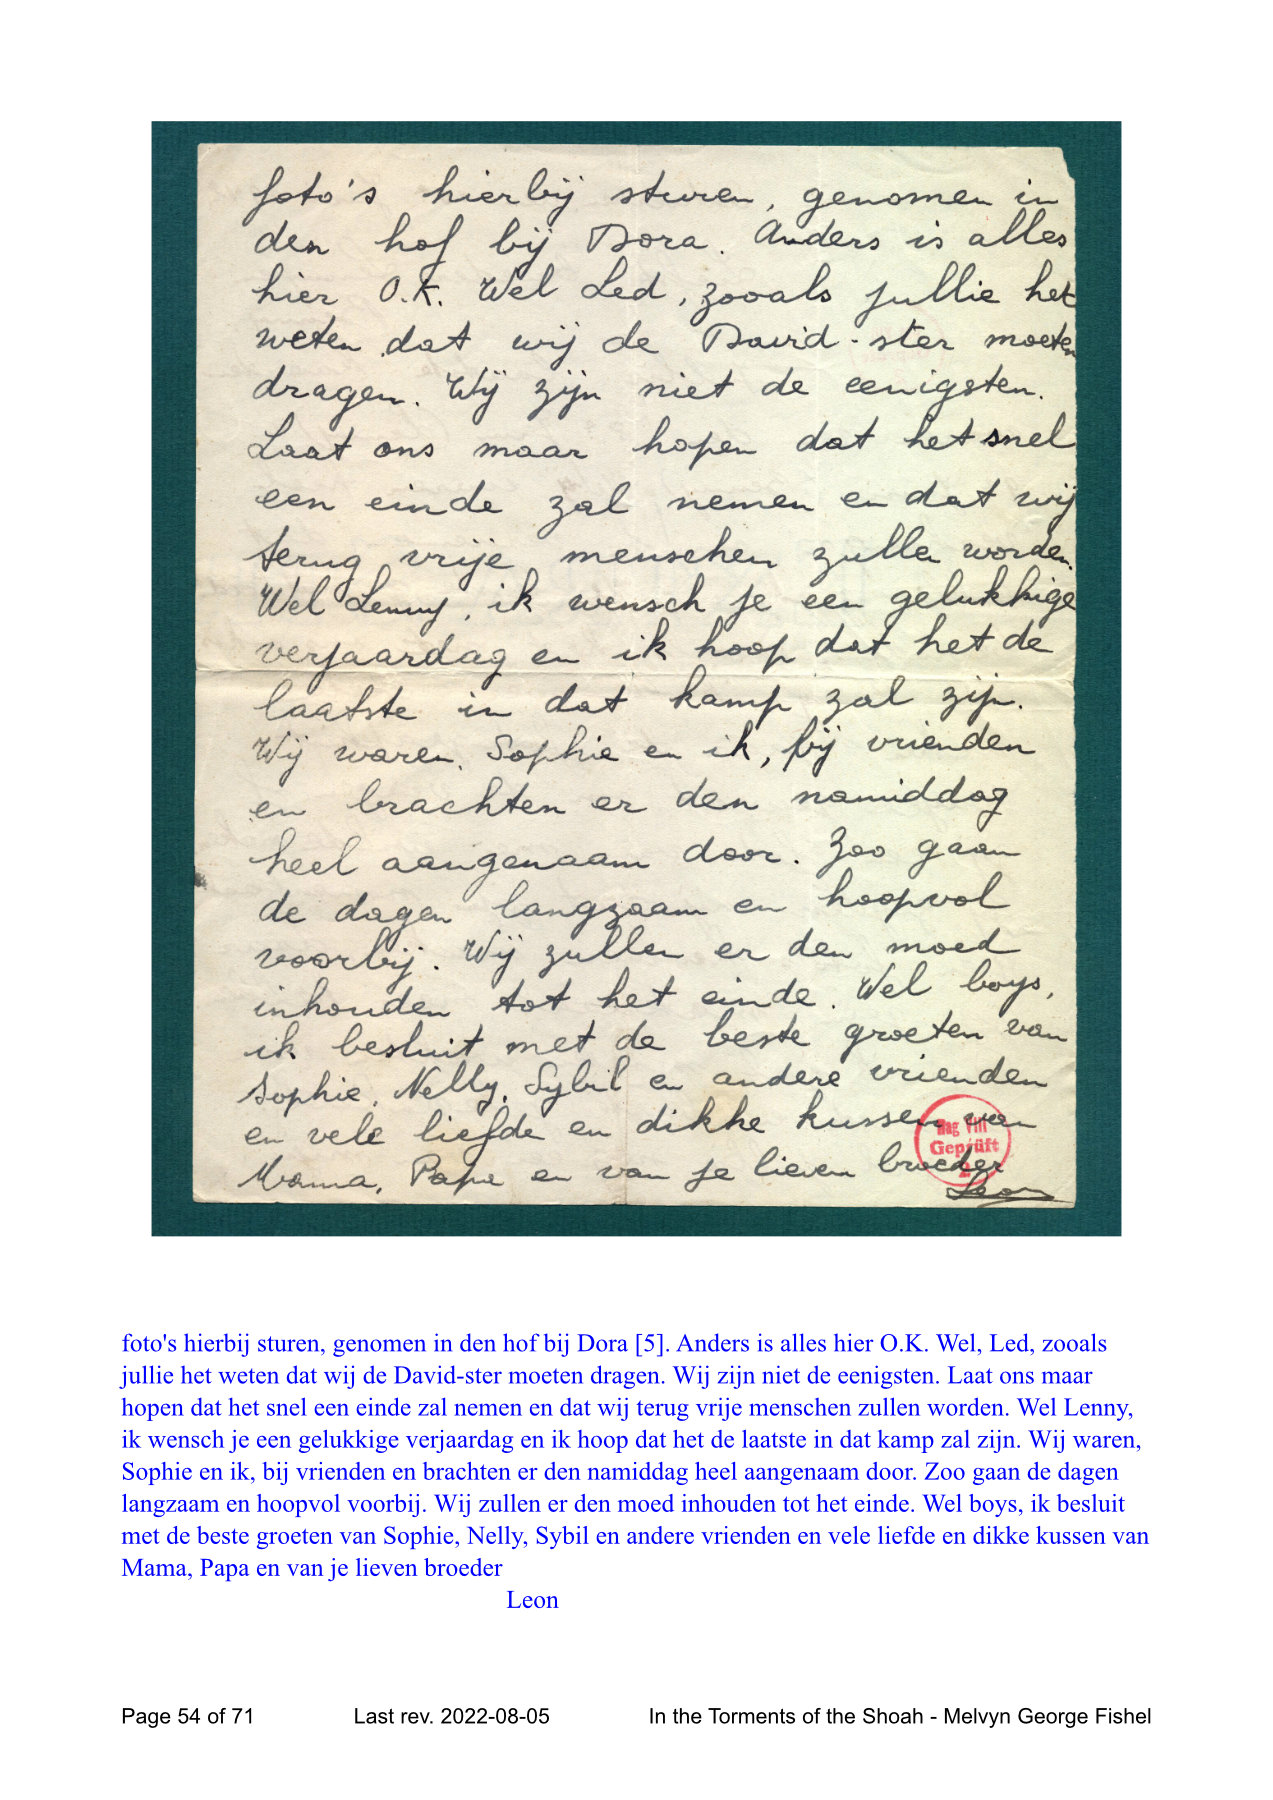 foto's hierbij sturen, genomen in
den hof bij Dora. Anders is alles
hier O.K. Wel Led, zooals jullie het
weten dat wij de David-ster moeten
dragen. Wij zijn niet de eenigsten.
Laat ons maar hopen dat het snel
een einde zal nemen en dat wij
terug vrije menschen zullen worden.
Wel Lenny, ik wensch je een gelukkige
verjaardag en ik hoop dat het de
laatste in dat kamp zal zijn.
Wij waren, Sophie en ik, bij vrienden
en brachten er den namiddag
heel aangenaam door. Zoo gaan
de dagen langzaam en hoopvol
voorbij. Wij zullen er den moed
inhouden tot het einde. Wel boys,
ik besluit met de beste groeten van
Sophie, Nelly, Sybil en andere vrienden
en vele liefde en dikke kussen van
Mama, Papa en van je lieven broeder
Leon
Hag VIII
Geprüft
2
foto's hierbij sturen, genomen in den hof bij Dora [5]. Anders is alles hier O.K. Wel, Led, zooals
jullie het weten dat wij de David-ster moeten dragen. Wij zijn niet de eenigsten. Laat ons maar
hopen dat het snel een einde zal nemen en dat wij terug vrije menschen zullen worden. Wel Lenny,
ik wensch je een gelukkige verjaardag en ik hoop dat het de laatste in dat kamp zal zijn. Wij waren,
Sophie en ik, bij vrienden en brachten er den namiddag heel aangenaam door. Zoo gaan de dagen
langzaam en hoopvol voorbij. Wij zullen er den moed inhouden tot het einde. Wel boys, ik besluit
met de beste groeten van Sophie, Nelly, Sybil en andere vrienden en vele liefde en dikke kussen van
Mama, Papa en van je lieven broeder
Leon
Page 54 of 71 Last rev. 2022-08-05 In the Torments of the Shoah - Melvyn George Fishel